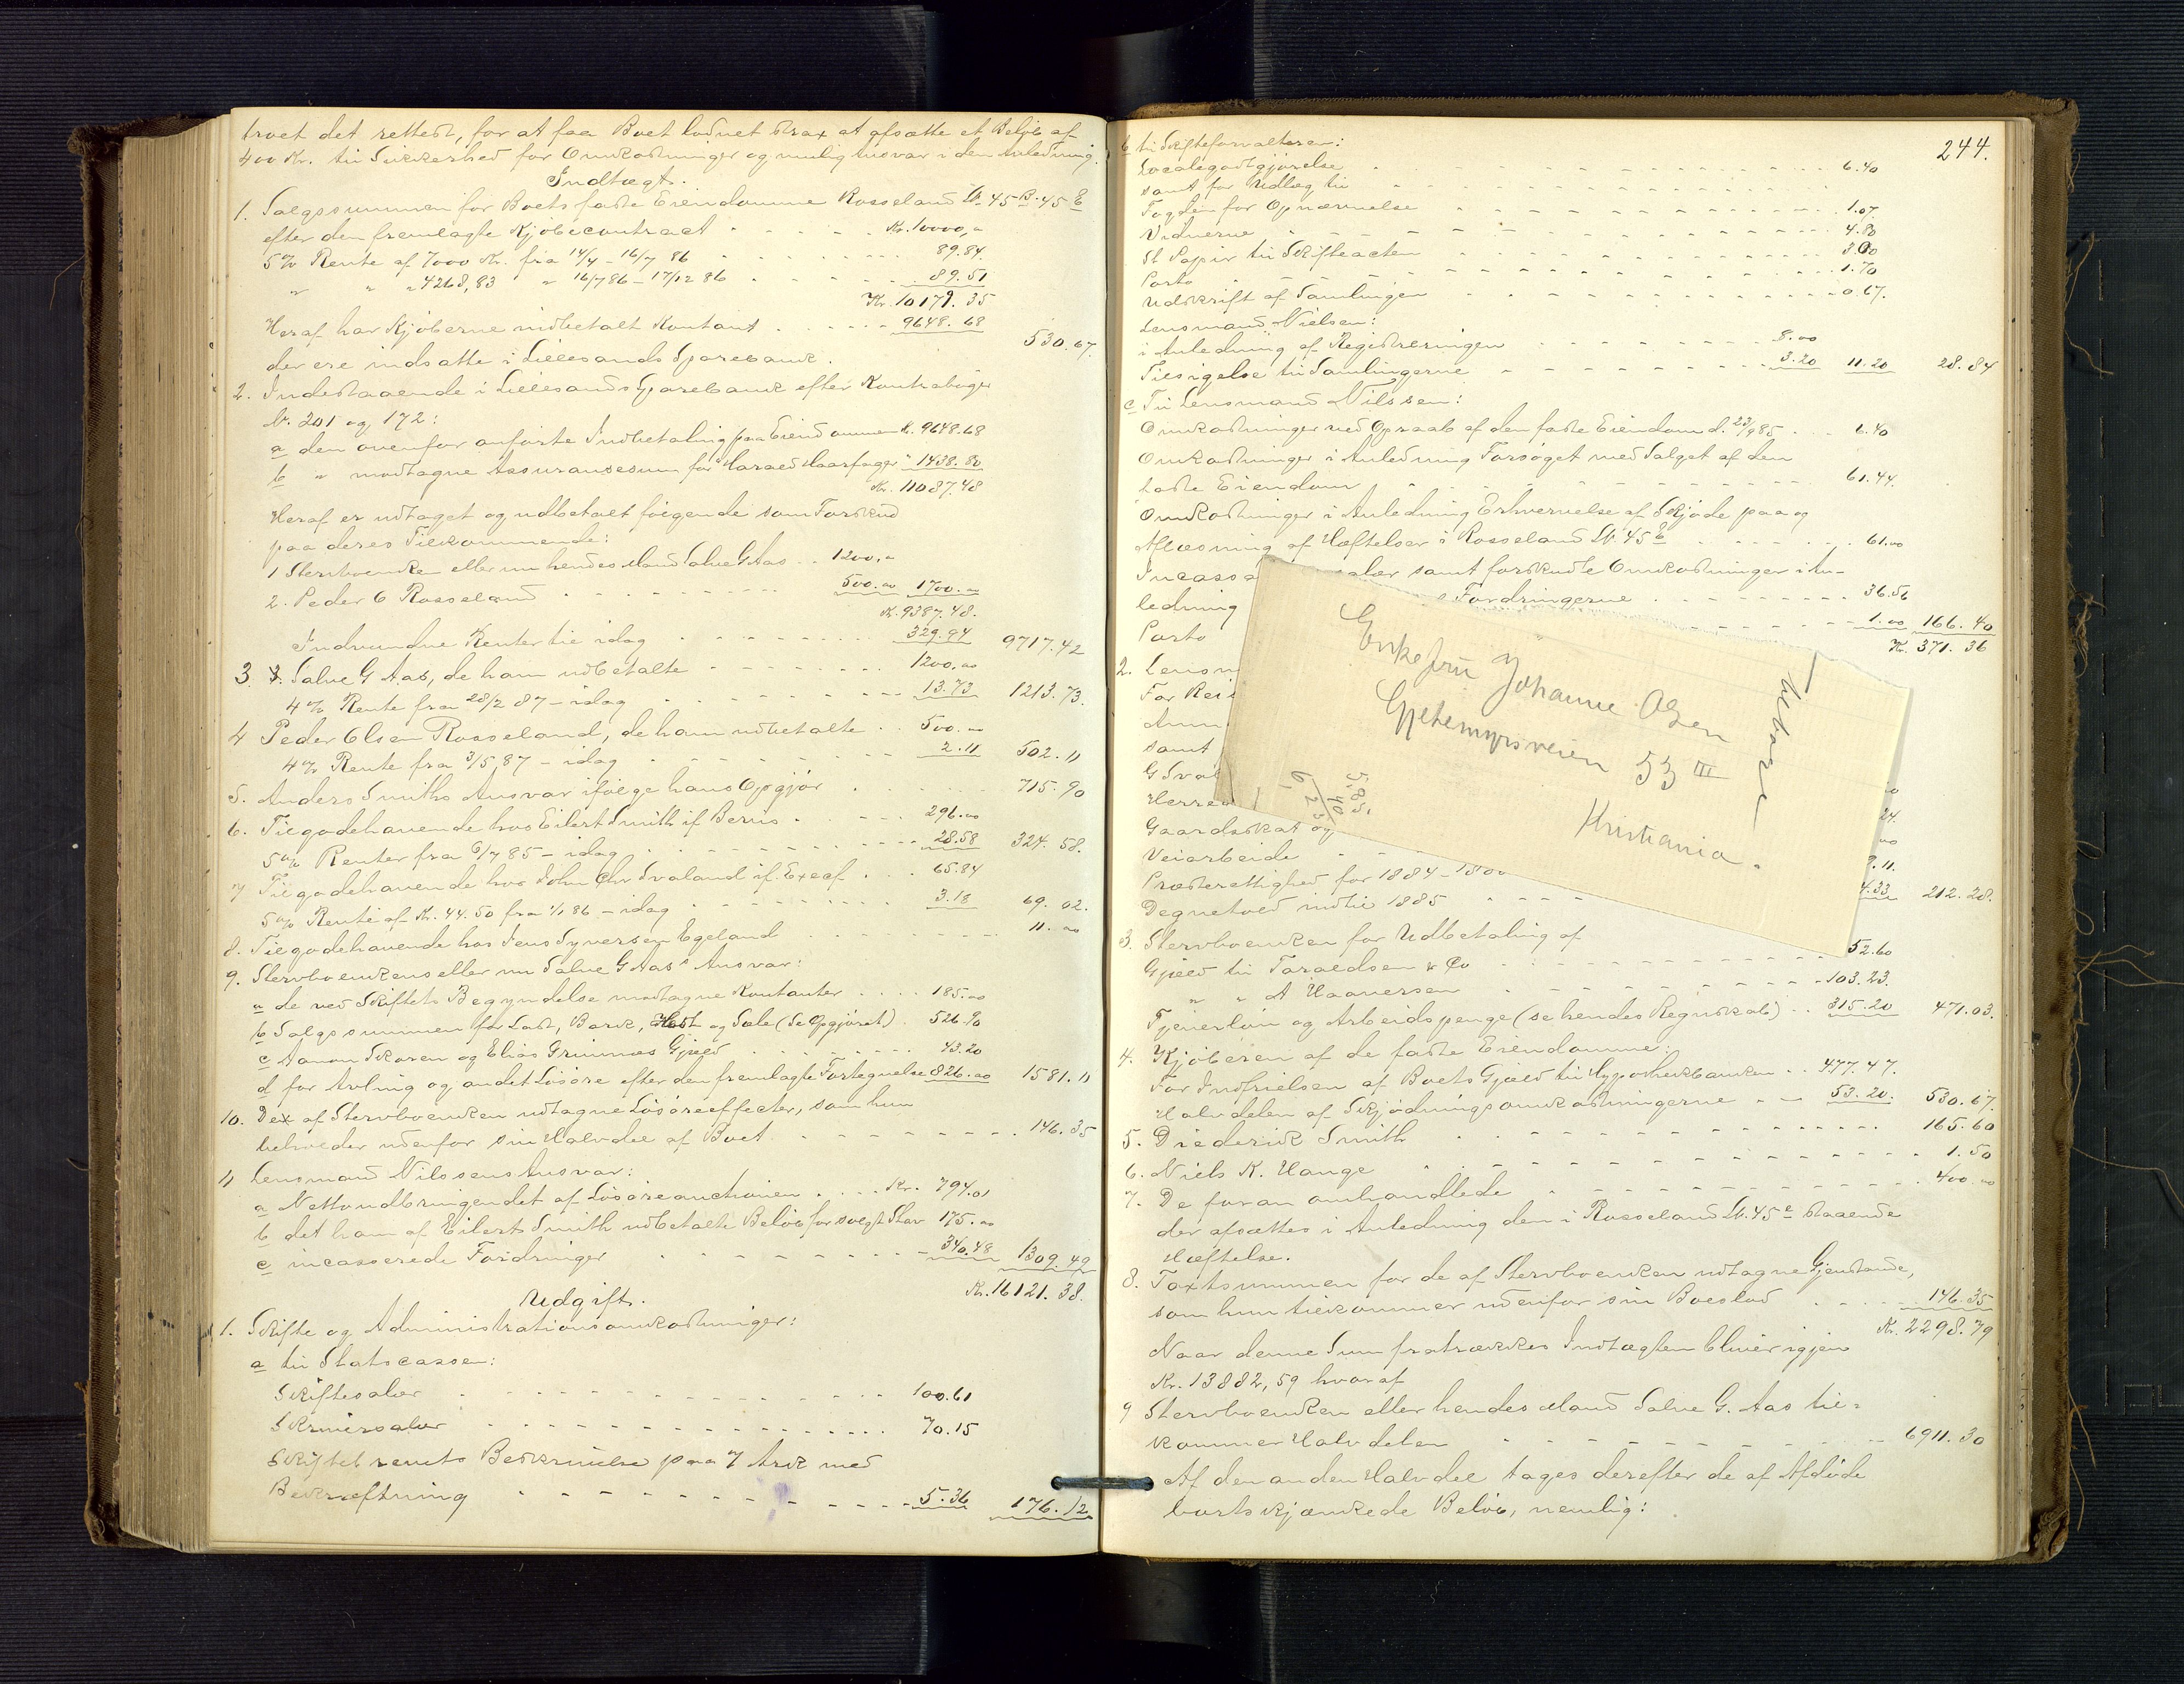 troet det rettest, for at faa Boet sluttet strax at afsætte et Beløb af
400 Kr. til Sikkerhed for Omkostninger og mulig Ansvar i den Anledning.
Indtægt.
1. Salgssummen for Boets faste Eiendomme Rosseland Lb. 45 B. 45 E
efter den fremlagte Kjøbecontract Kr. 10000,"
5 % Rente af 7000 Kr. fra 14/4 - 16/7 86 89.84.
" " " 4268,83 " 16/7 86 - 17/12 86 89.51
Kr. 10179.35
Heraf har Kjøberne indbetalt Kontant 9648.68
530.67.
der ere indsatte i Lillesands Sparebank.
2. Indestaaende i Lillesands Sparebank efter Kontrabøger
Nr. 201 og 172:
a den ovenfor anførte Indbetaling paa Eiendommen Kr. 9648.68
b " modtagne Assurancesum for "Harald Haarfager" 1438.80
Kr. 11087.48
Heraf er udtaget og udbetalt følgende som Forskud
paa deres Tilkommende:
1 Stervboenken eller nu hendes Mand Salve G Aas 1200,"
2. Peder O Rosseland 500.00 1700.00
Kr. 9387.48.
Indvundne Renter til idag 329.94 9717.42
3. Salve G Aas, de ham udbetalte 1200.00
4 % Rente fra 28/2 87 - idag 13.73 1213.73.
4 Peder Olsen Rosseland, de ham udbetalte 500.00
4 % Rente fra 3/5 87 - idag 2.11 502.11
5. Anders Smiths Ansvar ifølge hans Opgjør 715.90
6. Tilgodehavende hos Eilert Smith if. Bevis 296.00
5 % Renter fra 6/7 85 - idag 28.58 324.58.
7 Tilgodehavende hos John Chr Svaland if. Execf. 65.84
5 % Rente af Kr. 44.50 fra 1/1 86 - idag 3.18 69.02.
8. Tilgodehavende hos Jens Syversen Egeland 11.00
9. Stervboenkens eller nu Salve G Aas's Ansvar:
a de ved Skiftets Begyndelse modtagne Kontanter 185.00
b Salgssummen for Last, Bark, Hest og Sæle (se Opgjøret) 526.90
c Aanon Skaren og Elias Grimnes Gjæld 43.20
d for Avling og andet Løsøre efter den fremlagte Fortegnelse 826.00 1581.11
10. De af Stervboenken udtagne Løsøreeffecter, som hun
beholder udenfor sin Halvdel af Boet 146.35
11 Lensmand Nilssens Ansvar:
a Nettoudbringendet af Løsøreauctionen Kr. 794.01
b det ham af Eilert Smith udbetalte Beløb for solgt Stav 175.00
c incasserede Fordringer 340.48 1309.49
Kr. 16121.38.
Udgift.
1. Skifte og Administrationsomkostninger:
a til Statscassen:
Skiftesalær 100.61
Skriversalær 70.15
Skiftebrevets Beskrivelse paa 7 Ark med
Bekræftning 5.36 176.12
244.
b til Skifteforvalteren:
Localegodtgjørelse 6.40
samt for Udlæg til
Fogden for Opnævnelse 1.07.
Vidnerne 4.80
St Papir til Skifteacten 3.00
Porto 1.70
Udskrift af Samlingen 0.67.
Lensmand Nielsen:
i Anledning af Registreringen 8.00
Tilsigelse til Samlingerne 3.20 11.20 28.84
c Til Lensmand Nilssen:
Omkostninger ved Opraab af den faste Eiendom d. 23/9 85 6.40
Omkostninger i Anledning Forsøget med Salget af den
faste Eiendom 61.44.
Omkostninger i Anledning Erhvervelse af Skjøde paa og
Aflæsning af Hæftelser i Rosseland Lb. 45 E 61.00
Incassa salær samt forskudte Omkostninger i An-
ledning Fordringerne 36.56
Porto 1.00 166.40
Kr. 371.36
2. Lensm
For Reis
samt
G Sval
Herred
Gaardskat og 24.
Veiarbeide
Præsterettighed for 1884 - 9.11.
Degnetold indtil 1885 4.33 212.28.
Enkefru Johanne Olsen
Gjetemyrsveien 53 III
Kristiania.
5.85.
40
6 25
3. Stervboenken for Udbetaling af
Gjæld til Taraldsen & Co 52.60
" " A Haaversen 103.23.
Tjenerløn og Arbeidspenge (se hendes Regnskab) 315.20 471.03.
4. Kjøberen af de faste Eiendomme:
For Indfrielsen af Boets Gjæld til Hypothekbanken 477.47.
Halvdelen af Skjødningsomkostningerne 53.20. 530.67.
5. Diederik Smith 165.60
6. Niels K. Hauge 1.50
7. De foran omhandlede 400.00
der afsættes i Anledning den i Rosseland Lb. 45 e staaende
Hæftelse.
8. Taxtsummen for de af Stervboenken udtagne Gjenstande,
som hun tilkommer udenfor sin Boeslod 146.35
Kr. 2298.79
Naar denne Sum fratrækkes Indtægten bliver igjen
Kr. 13882,59 hvoraf
9 Stervboenken eller hendes Mand Salve G. Aas til-
kommer Halvdelen 6911.30
Af den anden Halvdel tages derefter de af Afdøde
bortskjænkede Beløb, nemlig: